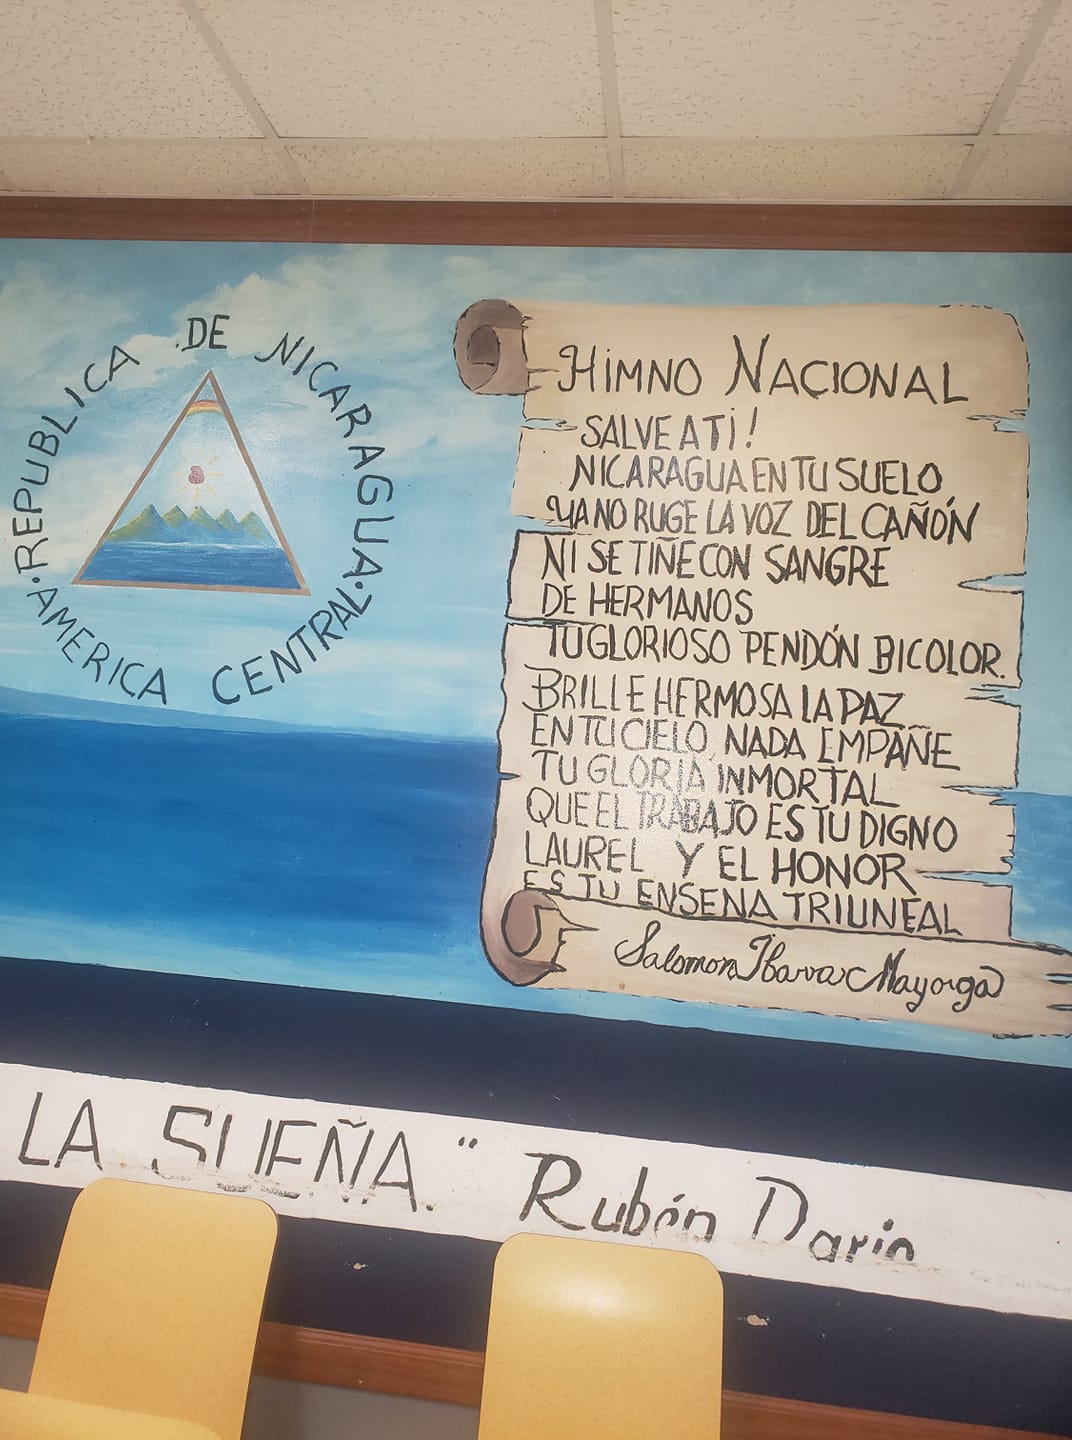 REPUBLICA DE NICARAGUA
AMERICA CENTRAL
HIMNO NACIONAL
SALVE A TI!
NICARAGUA EN TU SUELO
YA NO RUGE LA VOZ DEL CAÑÓN
NI SE TIÑE CON SANGRE
DE HERMANOS
TU GLORIOSO PENDÓN BICOLOR.
BRILLE HERMOSA LA PAZ
EN TU CIELO, NADA EMPAÑE
TU GLORIA INMORTAL
QUE EL TRABAJO ES TU DIGNO
LAUREL Y EL HONOR
ES TU ENSENA TRIUNEAL
Salomon Ibarra Mayorga
LA SUEÑA." Rubén Darío